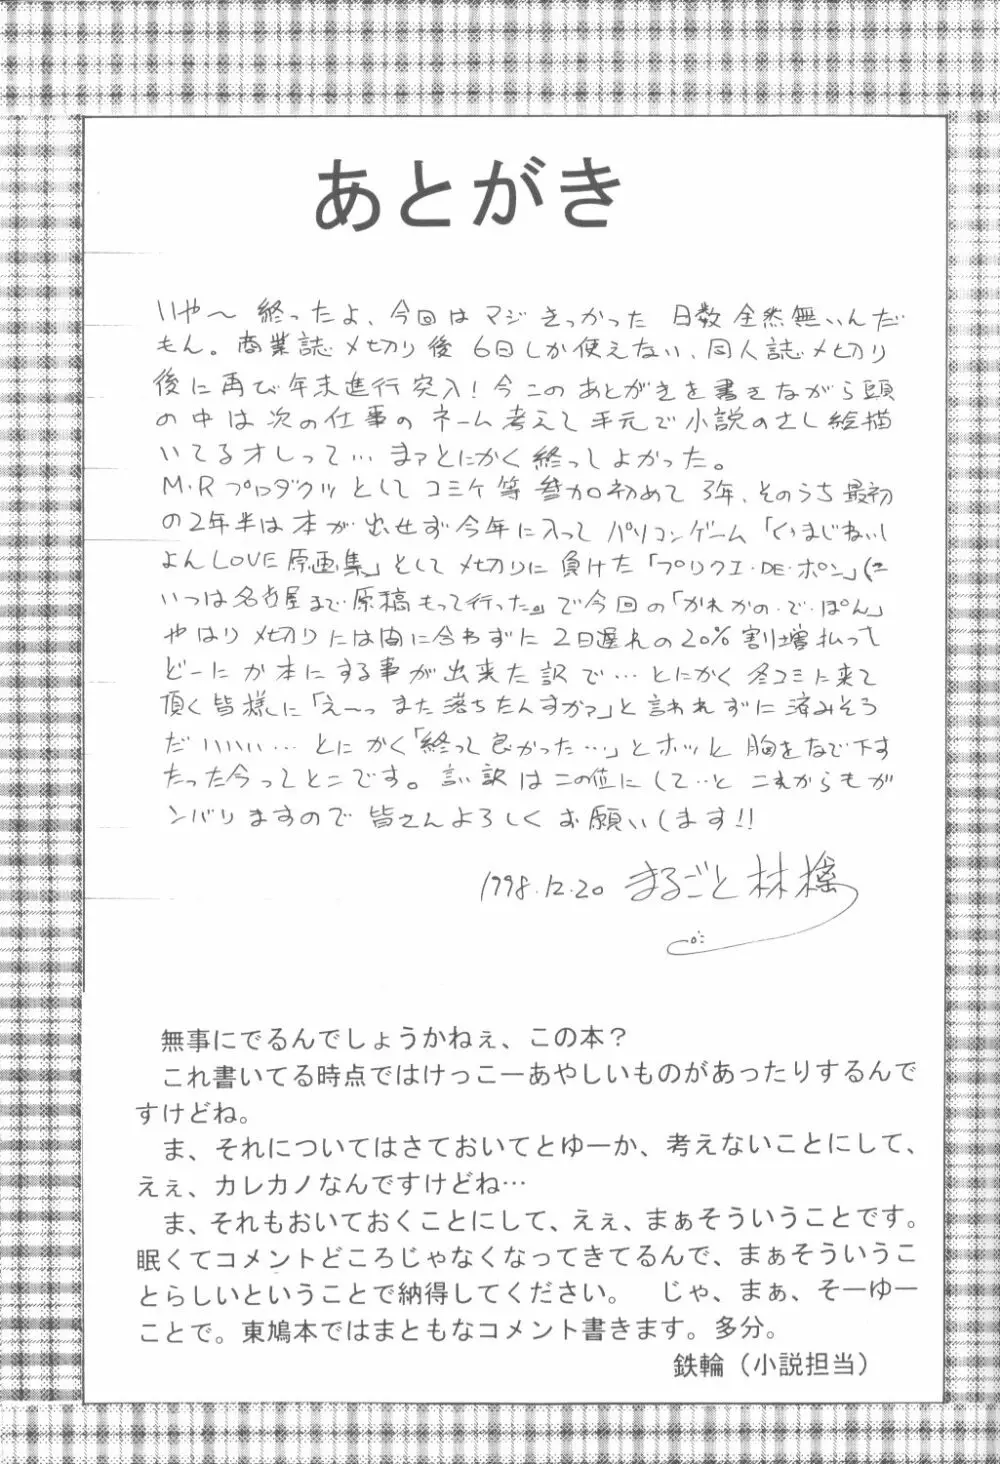 あとがき
いや〜 終ったよ、今回は マジ きっかった 日数 全然無いんだ
もん。商業誌〆切り後 6日しか使えない、同人誌〆切り
後に再び年末進行突入!今このあとがきを書きながら頭
の中は次の仕事の ネーム考えて手元で小説のさし絵描
いてるオレって… まァとにかく終ってよかった。
M・Rプロダクツとしてコミケ等 参加初めて3年、そのうち最初
の2年半は本が出せず今年に入って パソコンゲーム「いまじねいし
よんLOVE原画集」として〆切りに負けた「プリクエ・DE・ポン」(こ
いつは名古屋まで原稿もって行った。)で今回の「かれかの・で・ぽん」
やはり〆切りには間に合わずに2日遅れの20%割増払って
どーにか本にする事が出来た訳で… とにかく冬コミに来て
頂く皆様に「え〜っまた落ちたんすかァ」と言われずに済みそう
だ いいい… とにかく「終って良かった…」とホッと胸をなで下す
たった今ってとこです。言い訳はこの位にして…と これからもガ
ンバリますので皆さんよろしくお願いします!!
1998.12.20 まるごと林檎
無事にでるんでしょうかねぇ、この本?
これ書いてる時点ではけっこーあやしいものがあったりするんで
すけどね。
ま、それについてはさておいてとゆーか、考えないことにして、
えぇ、カレカノなんですけどね…
ま、それもおいておくことにして、えぇ、まぁそういうことです。
眠くてコメントどころじゃなくなってきてるんで、まぁそういうこ
とらしいということで納得してください。 じゃ、まぁ、そーゆー
ことで。東鳩本ではまともなコメント書きます。多分。
鉄輪(小説担当)